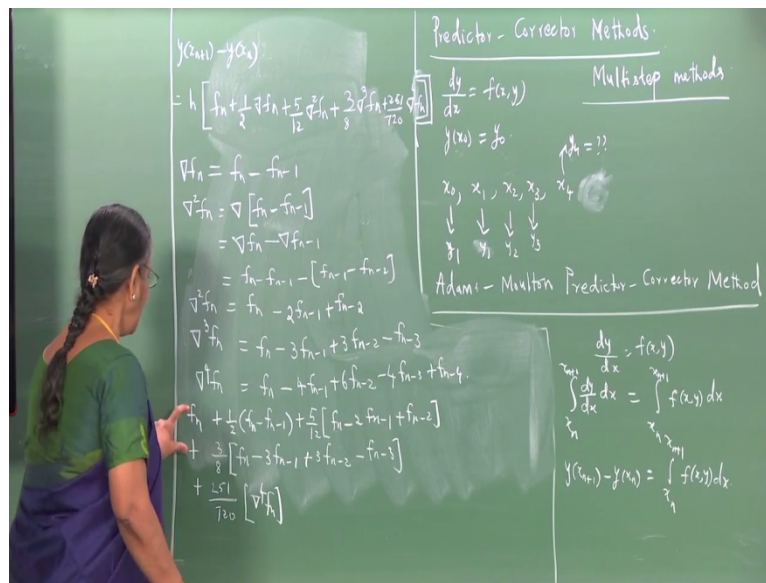 y(x_{n+1}) - y(x_n)
= h [ f_n + 1/2 ∇f_n + 5/12 ∇²f_n + 3/8 ∇³f_n + 251/720 ∇⁴f_n ]
∇f_n = f_n - f_{n-1}
∇²f_n = ∇[f_n - f_{n-1}]
= ∇f_n - ∇f_{n-1}
= f_n - f_{n-1} - [f_{n-1} - f_{n-2}]
∇²f_n = f_n - 2f_{n-1} + f_{n-2}
∇³f_n = f_n - 3f_{n-1} + 3f_{n-2} - f_{n-3}
∇⁴f_n = f_n - 4f_{n-1} + 6f_{n-2} - 4f_{n-3} + f_{n-4}.
f_n + 1/2 (f_n - f_{n-1}) + 5/12 [f_n - 2f_{n-1} + f_{n-2}]
+ 3/8 [f_n - 3f_{n-1} + 3f_{n-2} - f_{n-3}]
+ 251/720 [∇⁴f_n]
Predictor - Corrector Methods.
Multistep methods.
dy/dx = f(x,y)
y(x_0) = y_0
y_4 = ??
x_0, x_1, x_2, x_3, x_4
↓ ↓ ↓ ↓
y_1 y_1 y_2 y_3
Adams - Moulton Predictor - Corrector Method
dy/dx = f(x,y)
∫_{x_n}^{x_{n+1}} dy/dx dx = ∫_{x_n}^{x_{n+1}} f(x,y) dx
y(x_{n+1}) - y(x_n) = ∫_{x_n}^{x_{n+1}} f(x,y) dx.